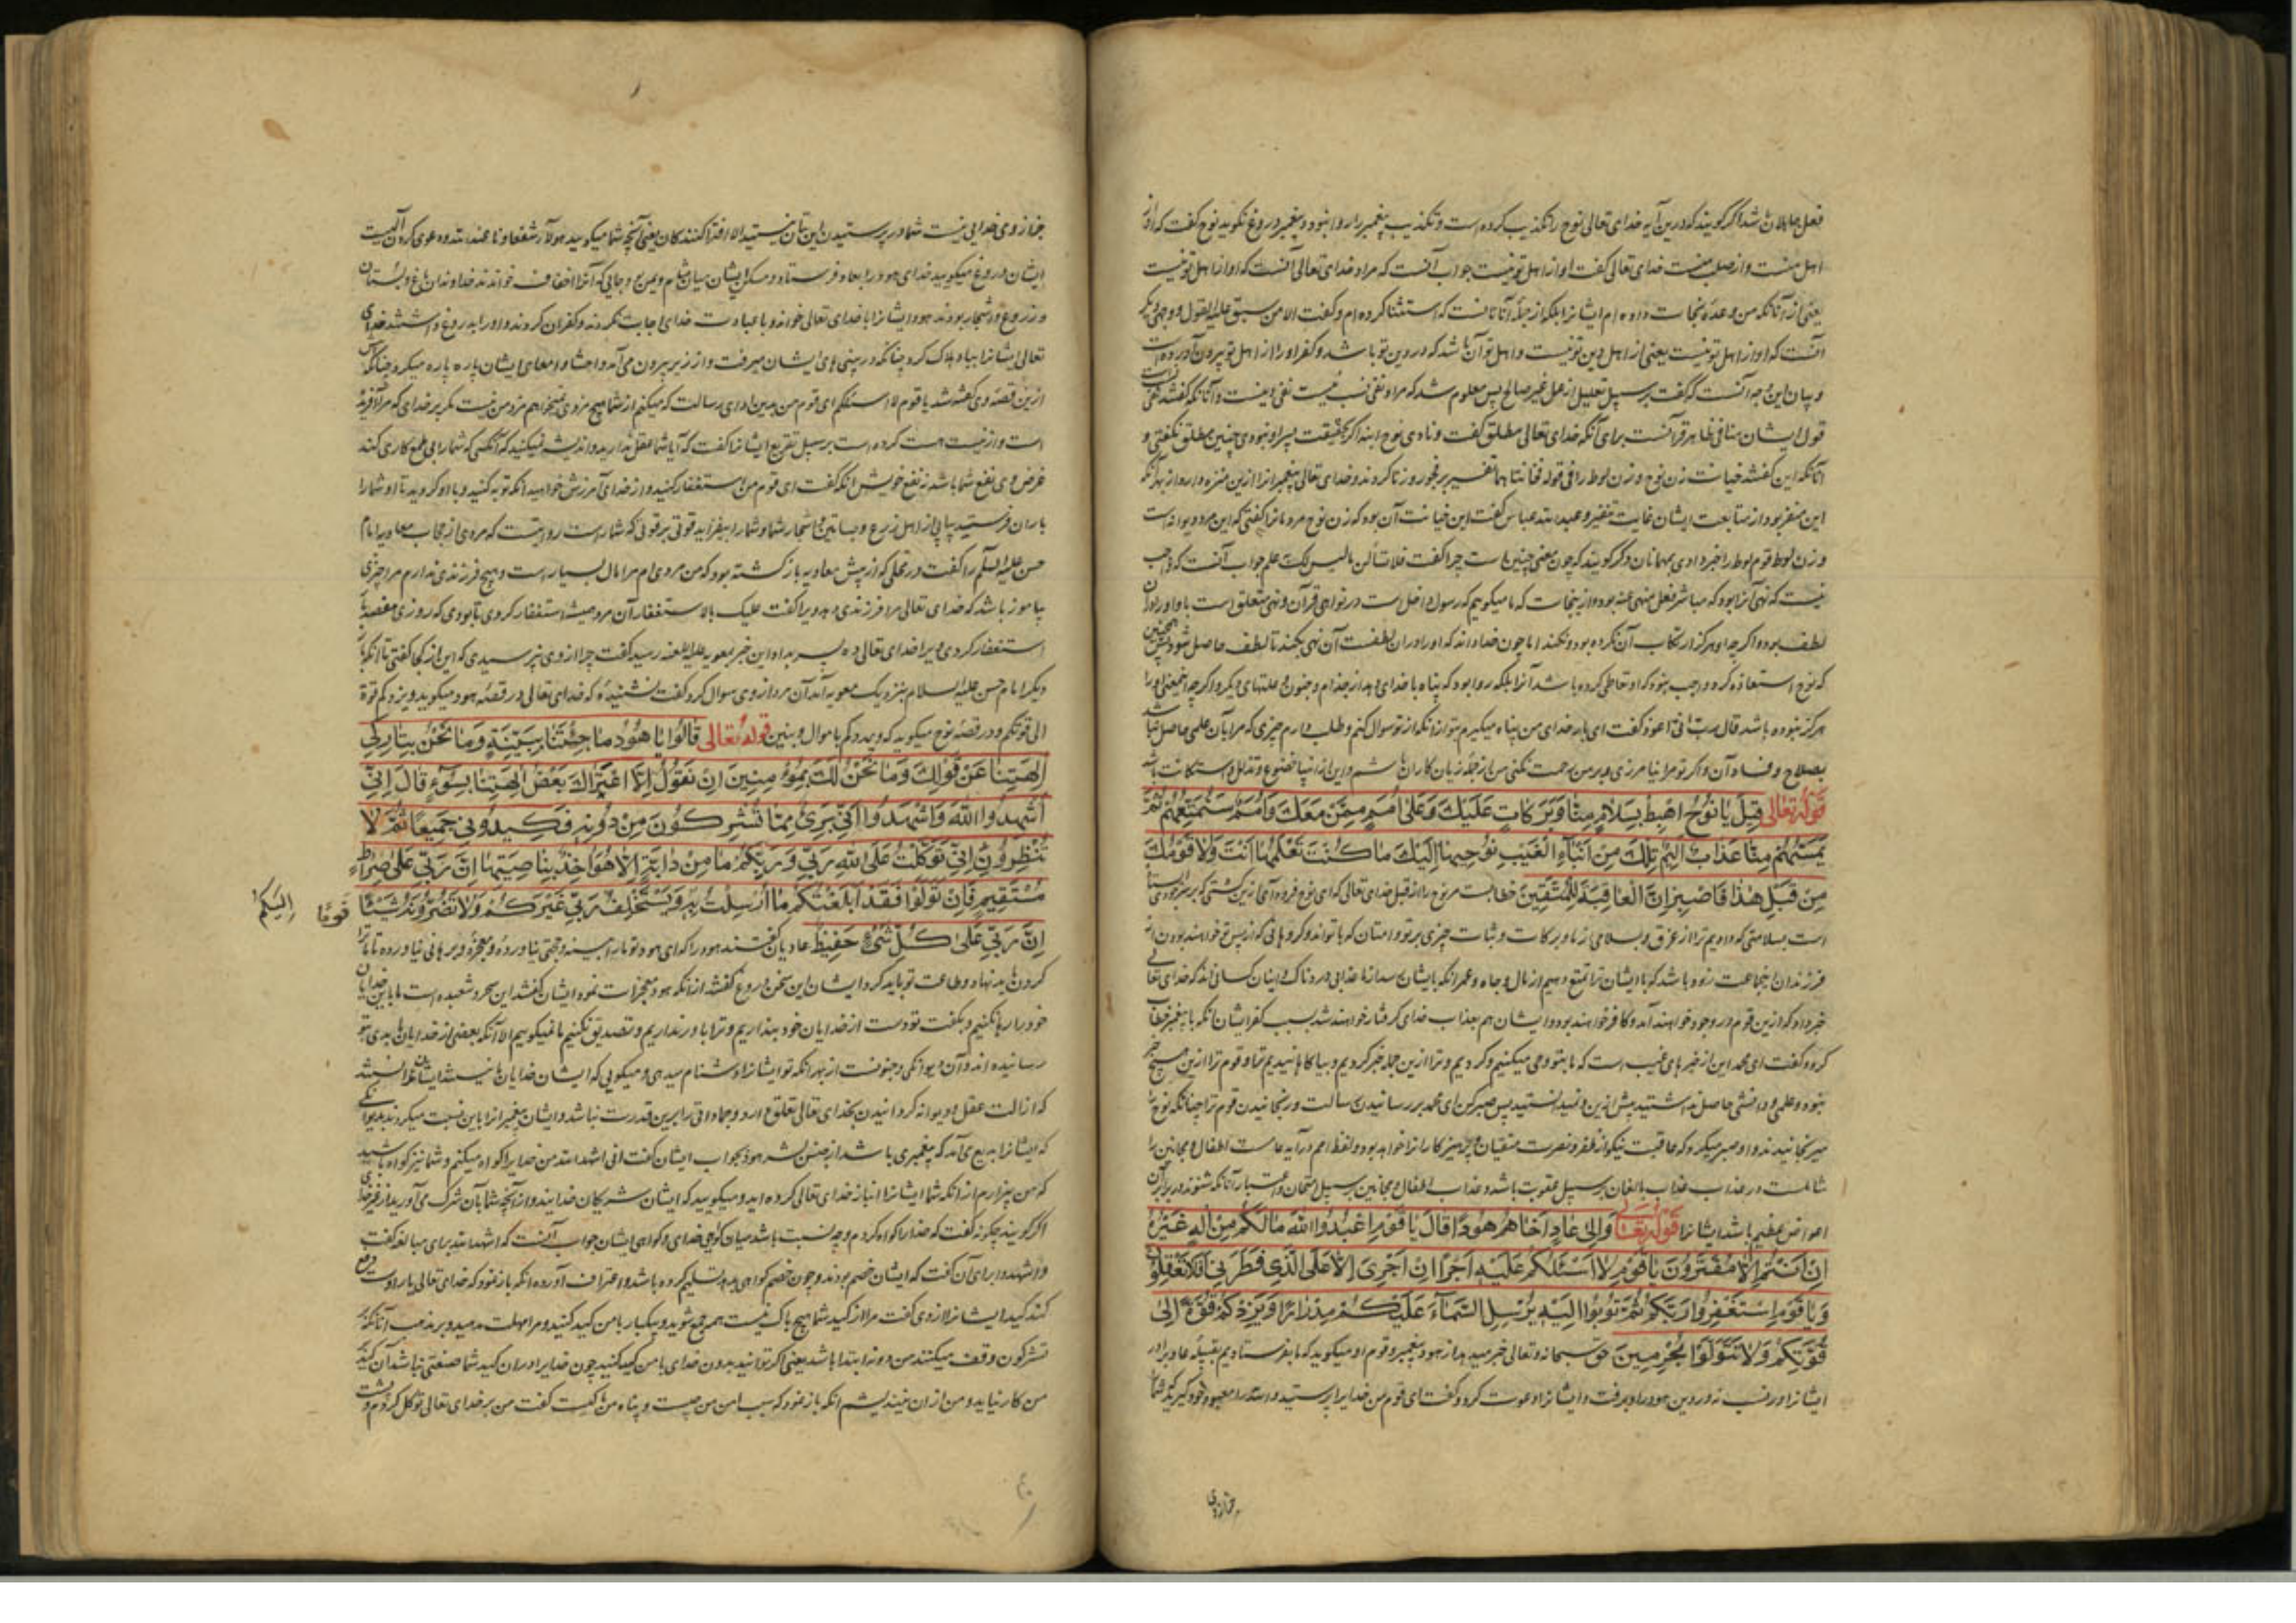 فعل جاهلان باشد اگر گویند که درین آیه خدای تعالی نوح را تکذیب کرده است و تکذیب پیغمبر را روا نبود و پیغمبر دروغ نگوید نوح گفت که او از
اهل منست و از صلب منست خدای تعالی گفت او از اهل تو نیست جواب آنست که مراد خدای تعالی آنست که او از اهل تو نیست
یعنی از آنانکه من وعده نجات داده ام ایشانرا بلکه از جمله آنانست که استثنا کرده ام و گفت الا من سبق علیه القول و وجهی دیگر
آنست که او از اهل تو نیست یعنی از اهل دین تو نیست و اهل تو آن باشد که در دین تو باشد و کفر او را از اهل تو بیرون آورده است
و بیان این وجه آنست که گفت بر سبیل تعلیل انه عمل غیر صالح پس معلوم شد که مراد نفی نسب نیست نفی دینست و آنانکه گفتند
قول ایشان منافی ظاهر قرآنست برای آنکه خدای تعالی مطلق گفت و نادی نوح ابنه اگر بحقیقت پسر او نبودی چنین مطلق نگفتی و
آنانکه این گفتند خیانت زن نوح و زن لوط را فی قوله فخانتاهما تفسیر بر فجور و زنا کردند و خدای تعالی پیغمبرانرا ازین منزه دارد از بهر آنکه
این منفر بود از متابعت ایشان غایت تنفیر و عبدالله عباس گفت این خیانت آن بود که زن نوح مردمانرا گفتی که این مرد دیوانه است
و زن لوط قوم لوط را خبر دادی بمهمانان و گر گویند که چون معنی چنین است چرا گفت فلا تسألن ما لیس لک به علم جواب آنست که واجب
نیست که نهی آنرا بود که مباشر فعل منهی عنه بوده از ینجاست که ما میگوییم که رسول داخل است در نواهی قرآن و نهی متعلق است باو و او را در آن
لطف بود و اگر چه او هرگز ارتکاب آن نکرده بود و نکند اما چون خدا داند که او را در آن لطفست آن نهی بکند تا لطف حاصل شود همچنین
که نوح استعاذه کرد واجب نبود که او تعاطی کرده باشد آنرا بلکه روا بود که پناه با خدای دهد از جذام و جنون و علتهای دیگر و اگر چه
هرگز نبوده باشد قال رب انی اعوذ گفت ای بار خدای من پناه میگیرم بتو از آنکه از تو سوال کنم و طلب دارم چیزی که مرا بآن علمی حاصل نباشد
بصلاح و فساد آن و اگر تو مرا نیامرزی و بر من رحمت نکنی من از جمله زیان کاران باشم و این از انبیا خضوع و تذلل و استکانت باشد
قوله تعالی قِيلَ يَا نُوحُ اهْبِطْ بِسَلَامٍ مِنَّا وَبَرَكَاتٍ عَلَيْكَ وَعَلَى أُمَمٍ مِمَّنْ مَعَكَ وَأُمَمٌ سَنُمَتِّعُهُمْ ثُمَّ
يَمَسُّهُمْ مِنَّا عَذَابٌ أَلِيمٌ تِلْكَ مِنْ أَنْبَاءِ الْغَيْبِ نُوحِيهَا إِلَيْكَ مَا كُنْتَ تَعْلَمُهَا أَنْتَ وَلَا قَوْمُكَ
مِنْ قَبْلِ هَذَا فَاصْبِرْ إِنَّ الْعَاقِبَةَ لِلْمُتَّقِينَ خطابست مر نوح را از قبل خدای تعالی که ای نوح فرود آی ازین کشتی
است بسلامتی که دادیم ترا از غرق و بسلامی از ما و برکات و ثبات چیزی بر تو و امتان که با تواند و گروهانی که از پس تو خواهند بودن از
فرزندان اینجماعت که با ایشان ترا تمتع دهیم از مال و جاه و عمر آنکه بایشان رسد از ما عذابی دردناک و اینان کسانی اند که خدای تعالی
خبر داد که ازین قوم در وجود خواهند آمد و کافر خواهند بود و ایشان هم بعذاب خدای گرفتار خواهند شد بسبب کفر ایشان آنکه با پیغمبر خطاب
کرد و گفت ای محمد این از خبرهای غیب است که ما بتو وحی میکنیم و کردیم و ترا ازین جمله خبر کردیم و بیاگاهانیدیم ترا و قوم ترا ازین هیچ خبر
نبود و علمی و دانشی حاصل نداشتید پیش ازین و نمیدانستید پس صبر کن ای محمد بر رسانیدن رسالت و رنجانیدن قوم ترا چنانکه نوح را
میرنجانیدند و او صبر میکرد که عاقبت نیکو از ظفر و نصرت متقیان و پرهیزکارانرا خواهد بود و لفظ امم در آیه عامست اطفال و مجانین را
شاملست در عذاب عذاب بالغان بر سبیل عقوبت باشد و عذاب اطفال و مجانین بر سبیل امتحان و اعتبار آنانکه شنوند و در برابر آن
اعواض عظیم باشد ایشانرا قوله تعالی وَإِلَى عَادٍ أَخَاهُمْ هُودًا قَالَ يَا قَوْمِ اعْبُدُوا اللَّهَ مَا لَكُمْ مِنْ إِلَهٍ غَيْرُهُ
إِنْ أَنْتُمْ إِلَّا مُفْتَرُونَ يَا قَوْمِ لَا أَسْئَلُكُمْ عَلَيْهِ أَجْرًا إِنْ أَجْرِيَ إِلَّا عَلَى الَّذِي فَطَرَنِي أَفَلَا تَعْقِلُونَ
وَيَا قَوْمِ اسْتَغْفِرُوا رَبَّكُمْ ثُمَّ تُوبُوا إِلَيْهِ يُرْسِلِ السَّمَاءَ عَلَيْكُمْ مِدْرَارًا وَيَزِدْكُمْ قُوَّةً إِلَى
قُوَّتِكُمْ وَلَا تَتَوَلَّوْا مُجْرِمِينَ حق سبحانه و تعالی خبر میدهد از هود پیغمبر و قوم او میگوید که ما بفرستادیم بقبیله عاد برادر
ایشانرا در نسب نه در دین هود را او برفت و ایشانرا دعوت کرد و گفت ای قوم من خدایرا پرستید و الله را معبود خود گیرید که شما
بجز از وی
بجز از وی خدایی نیست شما در پرستیدن این بتان نیستید الا افترا کنندگان یعنی آنچه شما میگویید هؤلاء شفعاؤنا عند الله و دعوی کردن الهیت
ایشان دروغ میگویید خدای هود را بعاد فرستاد و مسکن ایشان میان شام و یمن بود جایی که آنرا احقاف خوانند خداوندان باغ و بستان
و زروع و اشجار بودند هود ایشانرا با خدای تعالی خواند و با عبادت خدای اجابت نکردند و کفران کردند و او را بدروغ داشتند خدای
تعالی ایشانرا بباد هلاک کرد چنانکه در بینی های ایشان میرفت و از زیر بیرون می آمد و احشا و امعای ایشان پاره پاره میکرد چنانکه
ازین قصه وی گفته شد یا قوم لا اسئلکم ای قوم من بدین ادای رسالت که میکنم از شما هیچ مزدی نمیخواهم مزد من نیست مگر بر خدای که مرا آفریده
است و از نیست هست کرده است بر سبیل تقریع ایشانرا گفت که آیا شما عقل ندارید و اندیشه نمیکنید که آنکسی که شما را بی طمع کاری کند
غرض وی نفع شما باشد نه نفع خویش آنکه گفت ای قوم من استغفار کنید و از خدای آمرزش خواهید آنکه توبه کنید و با او گروید تا او شما را
باران فرستد پیاپی از اهل زرع و بساتین و اشجار شما و شما را بیفزاید قوتی بر قوتی که شما راست روایتست که مردی از حجاب معاویه امام
حسن علیه السلم را گفت در محلی که از پیش معاویه بازگشته بود که من مردی ام مرا مال بسیار است و هیچ فرزندی ندارم مرا چیزی
بیاموز باشد که خدای تعالی مرا فرزندی دهد ویرا گفت علیک بالاستغفار آن مرد همیشه استغفار کردی تا بودی که روزی هفتصد بار
استغفار کردی ویرا خدای تعالی ده پسر بداد این خبر بمعویه علیه اللعنه رسید گفت چرا از وی نپرسیدی که این از کجا گفتی تا آنکه بار
دیگر امام حسن علیه السلام بنزدیک معویه آمد آن مرد از وی سوال کرد گفت نشنیده که خدای تعالی در قصه هود میگوید ویزدکم قوة
الی قوتکم و در قصه نوح میگوید که ویمددکم باموال وبنین قوله تعالی قَالُوا يَا هُودُ مَا جِئْتَنَا بِبَيِّنَةٍ وَمَا نَحْنُ بِتَارِكِي
آلِهَتِنَا عَنْ قَوْلِكَ وَمَا نَحْنُ لَكَ بِمُؤْمِنِينَ إِنْ نَقُولُ إِلَّا اعْتَرَاكَ بَعْضُ آلِهَتِنَا بِسُوءٍ قَالَ إِنِّي
أُشْهِدُ اللَّهَ وَاشْهَدُوا أَنِّي بَرِيءٌ مِمَّا تُشْرِكُونَ مِنْ دُونِهِ فَكِيدُونِي جَمِيعًا ثُمَّ لَا
تُنْظِرُونِ إِنِّي تَوَكَّلْتُ عَلَى اللَّهِ رَبِّي وَرَبِّكُمْ مَا مِنْ دَابَّةٍ إِلَّا هُوَ آخِذٌ بِنَاصِيَتِهَا إِنَّ رَبِّي عَلَى صِرَاطٍ
مُسْتَقِيمٍ فَإِنْ تَوَلَّوْا فَقَدْ أَبْلَغْتُكُمْ مَا أُرْسِلْتُ بِهِ وَيَسْتَخْلِفُ رَبِّي غَيْرَكُمْ وَلَا تَضُرُّونَهُ شَيْئًا
قَوْمًا
إِلَيْكُمْ
إِنَّ رَبِّي عَلَى كُلِّ شَيْءٍ حَفِيظٌ عادیان گفتند هود را که ای هود تو ما را بینه و حجتی نیاورده و معجزه و برهانی نیاورده تا ما ترا
گردن باید نهاد و طاعت تو باید کرد ایشان این سخن دروغ گفتند از آنکه هود معجزات نمود ایشان گفتند این سحر و شعبده است ما باین خدایان
خود را رها نکنیم و بگفت تو دست از خدایان خود بنداریم و ترا باور نداریم و تصدیق نکنیم ما نمیگوییم الا آنکه بعضی از خدایان ما بدی بتو
رسانیده اند و آن دیوانگی و جنونست از بهر آنکه تو ایشانرا دشنام میدهی و میگویی که ایشان خدایان نیستند ایشان ندانستند
که ازالت عقل و دیوانه گردانیدن بخدای تعالی تعلق دارد و جماد را برین قدرت نباشد و ایشان پیغمبر را باین نسبت میکردند بدیوانگی
که ایشانرا بدیع می آمد که پیغمبری باشد از جنس بشر هود بجواب ایشان گفت انی اشهد الله من خدایرا گواه میکنم و شما نیز گواه باشید
که من بیزارم از آنکه شما ایشانرا انباز خدای تعالی کرده اید و میگویید که ایشان شریکان خدایند و از آنچه شما بآن شرک می آورید از غیر خدای
اگر گویند چگونه گفت که خدا را گواه کردم و چه نسبت باشد میان گواهی خدای و گواهی ایشان جواب آنست که اشهد الله برای مبالغه گفت
و اشهدوا برای آن گفت که ایشان خصم بودند و چون خصم گواهی بدهد تسلیم کرده باشد و اعتراف آورده آنکه باز نمود که خدای تعالی یار اوست
کند کید ایشانرا از وی گفت مرا از کید شما هیچ باک نیست همه جمع شوید و بیکبار با من کید کنید و مرا مهلت مدهید و بر مذهب آنانکه بر
تشرکون وقف میکنند من دونه ابتدا باشد یعنی اگر توانید بدون خدای با من کید کنید چون خدا یار من است در آن کید شما منفعتی نباشد آن کید بر
من کار نیاید و من از آن نیندیشم آنکه باز نمود که سبب امن من چیست و پناه من کیست گفت من بر خدای تعالی توکل کردم و پشت